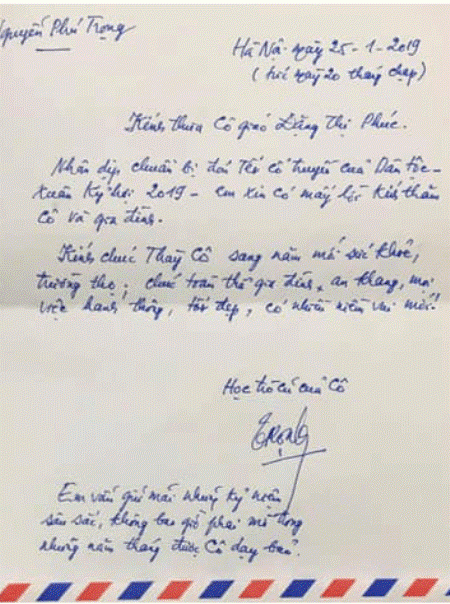 Nguyễn Phú Trọng
Hà Nội ngày 25-1-2019
(tức ngày 20 tháng chạp)
Kính thưa Cô giáo Đặng Thị Phúc.
Nhân dịp chuẩn bị đón Tết cổ truyền của Dân tộc -
Xuân Kỷ hợi 2019 - em xin có mấy lời kính thăm
Cô và gia đình.
Kính chúc Thầy Cô sang năm mới sức khoẻ,
trường thọ; chúc toàn thể gia đình an khang, mọi
việc hanh thông, tốt đẹp, có nhiều niềm vui mới!
Học trò cũ của Cô
Trọng
Em vẫn giữ mãi những kỷ niệm
sâu sắc, không bao giờ phai mờ trong
những năm tháng được Cô dạy bảo.